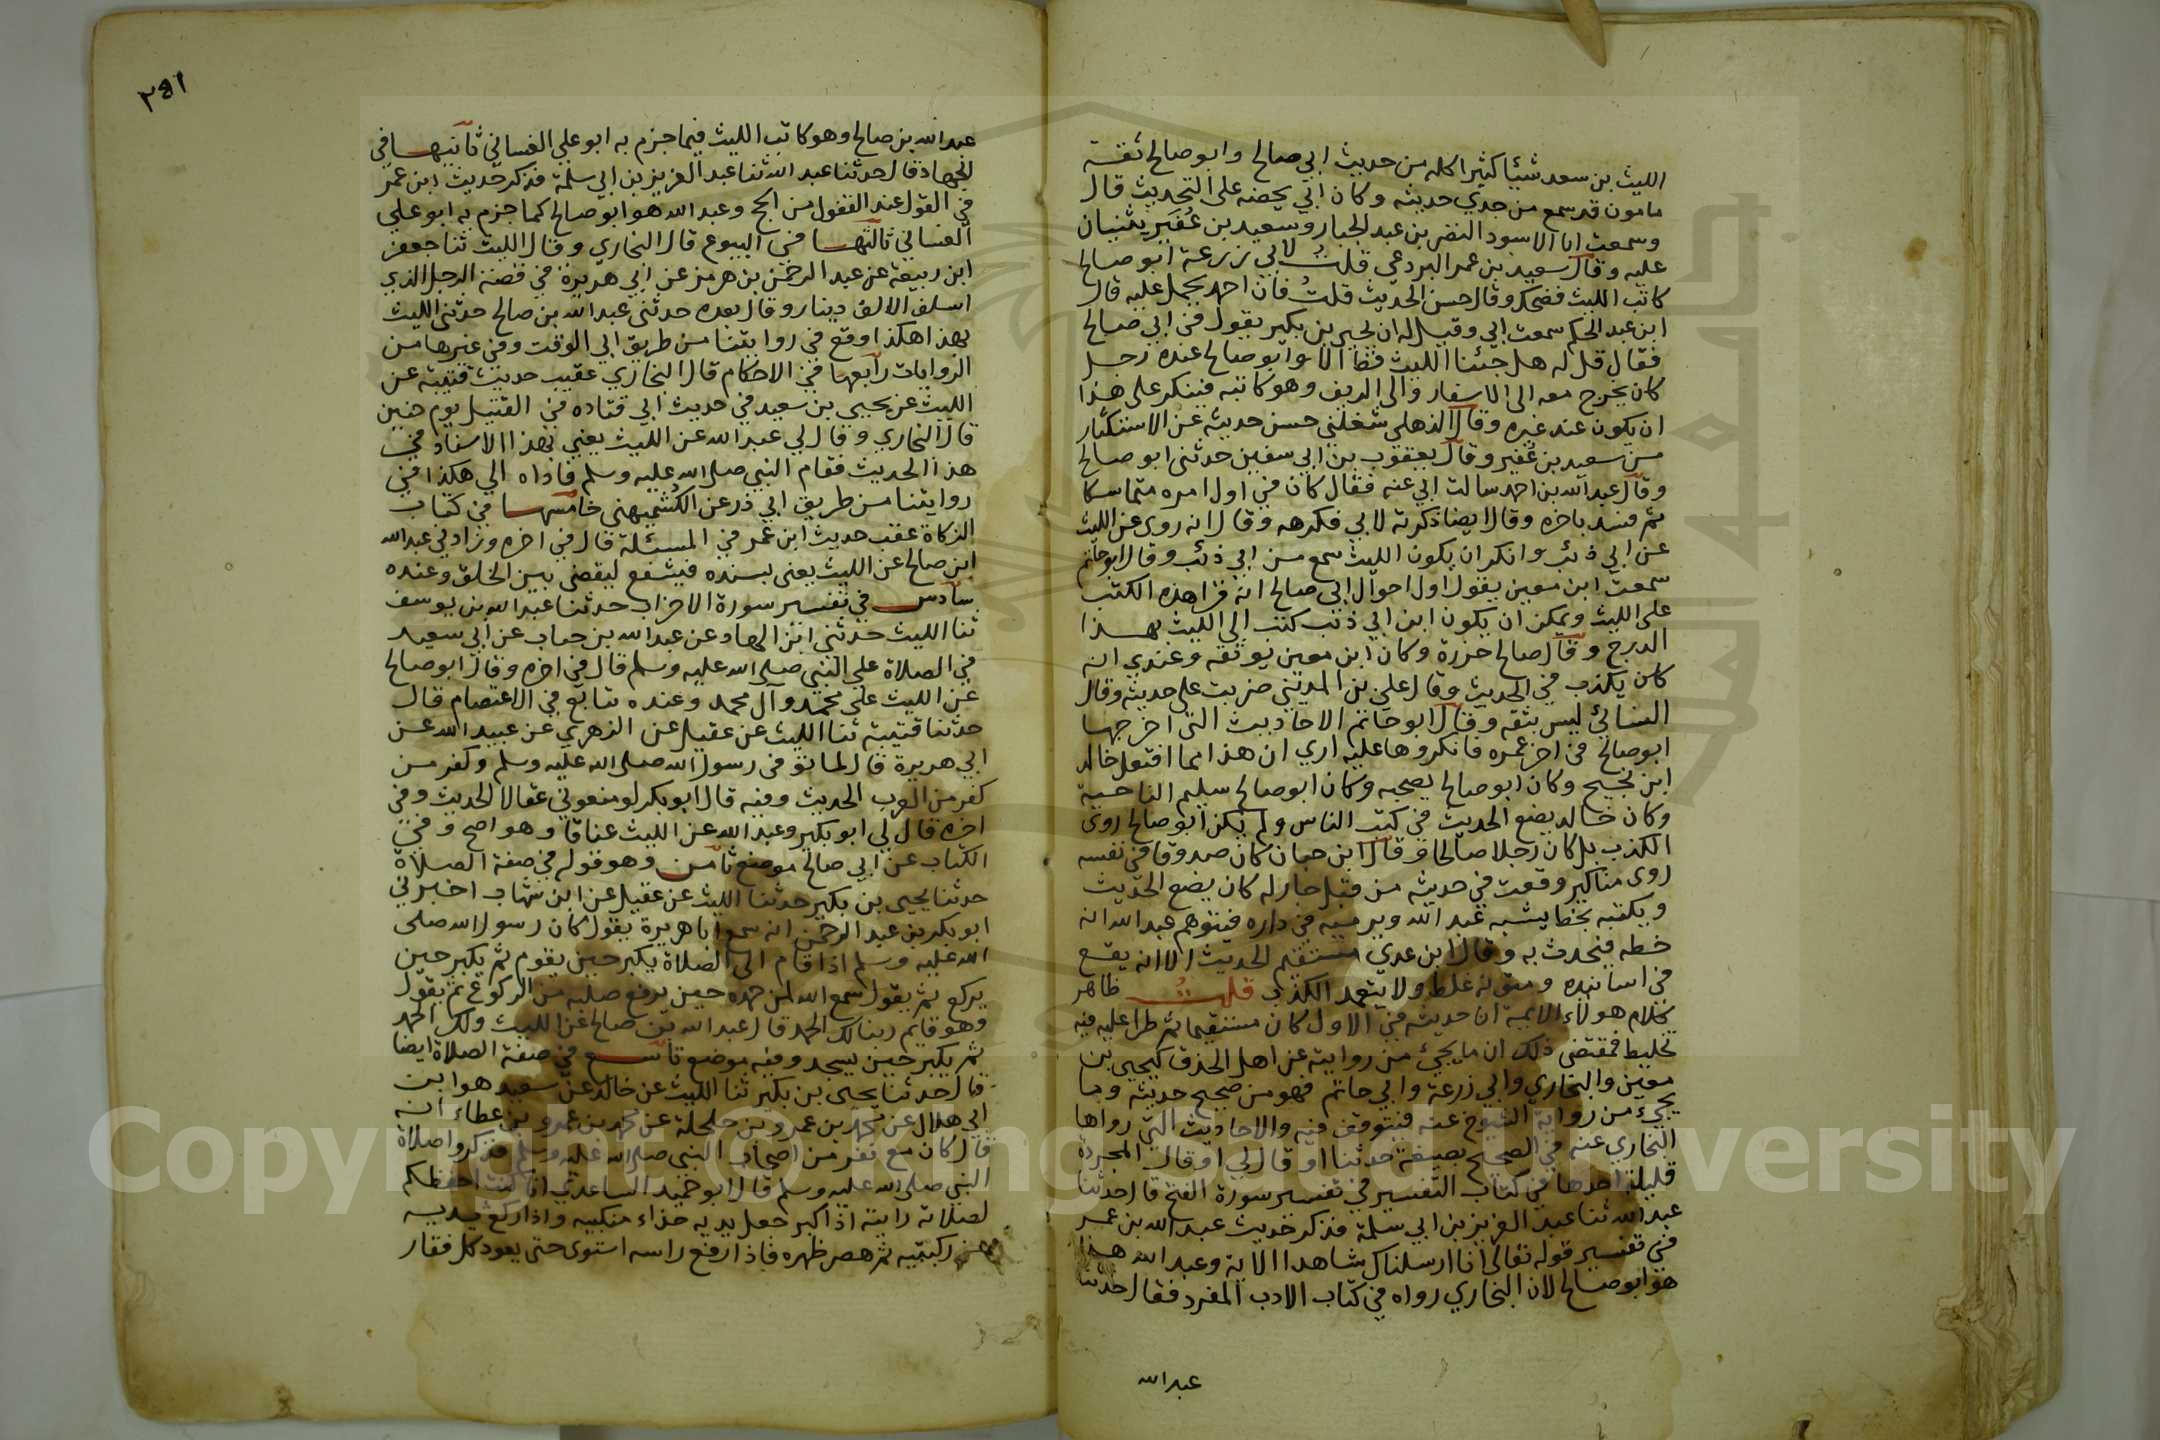 الليث بن سعد شيئا كثيرا كله من حديث ابي صالح وابو صالح ثقة
مامون قد سمع من جدي حديثه وكان ابي يحضه على التحديث قال
وسمعت ابا الاسود النضر بن عبد الجبار وسعيد بن عفير يثنيان
عليه وقال سعيد بن عمر البردعي قلت لابي زرعة ابو صالح
كاتب الليث فضحك وقال حسن الحديث قلت فان احمد يحمل عليه قال
ابن عبد الحكم سمعت ابي وقيل له ان يحيى بن بكير يقول في ابي صالح
فقال قل له هل جئنا الليث قط الا وابو صالح عنده رجل
كان يخرج معه الى الاسفار والى الريف وهو كاتبه فينكر على هذا
ان يكون عند غيره وقال الذهلي شغلني حسن حديثه عن الاستكثار
من سعيد بن عفير وقال يعقوب بن ابي سفين حدثني ابو صالح
وقال عبد الله بن احمد سالت ابي عنه فقال كان في اول امره متماسكا
ثم فسد باخره وقال ايضا ذكرته لابي فكرهه وقال انه روى عن الليث
عن ابي ذئب وانكر ان يكون الليث سمع من ابي ذئب وقال ابو حاتم
سمعت ابن معين يقول اول احوال ابي صالح انه قرا هذه الكتب
على الليث ويمكن ان يكون ابن ابي ذئب كتب الى الليث بهذا
الدرج وقال صالح جزرة وكان ابن معين يوثقه وعندي انه
كان يكذب في الحديث وقال علي بن المديني ضربت على حديثه وقال
النسائي ليس بثقة وقال ابو حاتم الاحاديث التي اخرجها
ابو صالح في اخر عمره فانكروها عليه ارى ان هذا مما افتعل خالد
ابن نجيح وكان ابو صالح يصحبه وكان ابو صالح سليم الناحية
وكان خالد يضع الحديث في كتب الناس ولم يكن ابو صالح روى
الكذب بل كان رجلا صالحا وقال ابن حبان كان صدوقا في نفسه
روى مناكير وقعت في حديثه من قبل جار له كان يضع الحديث
ويكتبه بخط يشبه عبد الله ويرميه في داره فيتوهم عبد الله انه
خطه فيحدث به وقال ابن عدي مستقيم الحديث الا انه يقع
في اسانيده ومتونه غلط ولا يتعمد الكذب قلت ظاهر
كلام هولاء الايمة ان حديثه في الاول كان مستقيما ثم طرا عليه فيه
تخليط فمقتضى ذلك ان ما يجيء من روايته عن اهل الحذق كيحيى بن
معين والبخاري وابي زرعة وابي حاتم فهو من صحيح حديثه وما
يجيء من رواية الشيوخ عنه فيتوقف فيه والاحاديث التي رواها
البخاري عنه في الصحيح بصيغة حدثنا او قال لي او قال المجردة
قليلة احدها في كتاب التفسير في تفسير سورة الفتح قال حدثنا
عبد الله ثنا عبد العزيز بن ابي سلمة فذكر حديث عبد الله بن عمر
في تفسير قوله تعالى انا ارسلناك شاهدا الاية وعبد الله هذا
هو ابو صالح لان البخاري رواه في كتاب الادب المفرد فقال حدثنا
عبد الله
٢٩١
عبد الله بن صالح وهو كاتب الليث فيما جزم به ابو علي الغساني ثانيها في
الجهاد قال حدثنا عبد الله ثنا عبد العزيز بن ابي سلمة فذكر حديث ابن عمر
في القول عند القفول من الحج وعبد الله هو ابو صالح كما جزم به ابو علي
الغساني ثالثها في البيوع قال البخاري وقال الليث ثنا جعفر
ابن ربيعة عن عبد الرحمن بن هرمز عن ابي هريرة في قصة الرجل الذي
اسلف الالف دينار وقال بعده حدثني عبد الله بن صالح حدثني الليث
بهذا هكذا وقع في روايتنا من طريق ابي الوقت وفي غيرها من
الروايات رابعها في الاحكام قال البخاري عقيب حديث قتيبة عن
الليث عن يحيى بن سعيد في حديث ابي قتاده في القتيل يوم حنين
قال البخاري وقال لي عبد الله عن الليث يعني بهذا الاسناد في
هذا الحديث فقام النبي صلى الله عليه وسلم فاداه الي هكذا في
روايتنا من طريق ابي ذر عن الكشميهني خامسها في كتاب
الزكاة عقب حديث ابن عمر في المسئلة قال في اخره وزاد لي عبد الله
ابن صالح عن الليث يعني بسنده فيشفع ليقضى بين الخلق وعنده
سادس في تفسير سورة الاحزاب حدثنا عبد الله بن يوسف
ثنا الليث حدثني ابن الهاد عن عبد الله بن خباب عن ابي سعيد
في الصلاة على النبي صلى الله عليه وسلم قال في اخره وقال ابو صالح
عن الليث على محمد وآل محمد وعنده سابع في الاعتصام قال
حدثنا قتيبة ثنا الليث عن عقيل عن الزهري عن عبيد الله عن
ابي هريرة قال لما توفى رسول الله صلى الله عليه وسلم وكفر من
كفر من العرب الحديث وفيه قال ابو بكر لو منعوني عقالا الحديث وفي
اخره قال لي ابو بكير وعبد الله عن الليث عناقا وهو اصح وفي
الكتاب عن ابي صالح موضع ثامن وهو قوله في صفة الصلاة
حدثنا يحيى بن بكير حدثنا الليث عن عقيل عن ابن شهاب اخبرني
ابو بكر بن عبد الرحمن انه سمع ابا هريرة يقول كان رسول الله صلى
الله عليه وسلم اذا قام الى الصلاة يكبر حين يقوم ثم يكبر حين
يركع ثم يقول سمع الله لمن حمده حين يرفع صلبه من الركوع ثم يقول
وهو قايم ربنا لك الحمد قال عبد الله بن صالح عن الليث ولك الحمد
ثم يكبر حين يسجد وفيه موضع تاسع في صفة الصلاة ايضا
قال حدثنا يحيى بن بكير ثنا الليث عن خالد عن سعيد هو ابن
ابي هلال عن محمد بن عمرو بن حلحلة عن محمد بن عمرو بن عطاء انه
قال كان مع نفر من اصحاب النبي صلى الله عليه وسلم فذكروا صلاة
النبي صلى الله عليه وسلم قال ابو حميد الساعدي انا كنت احفظكم
لصلاته رايته اذا كبر جعل يديه حذاء منكبيه واذا ركع يديه
من ركبتيه ثم هصر ظهره فاذا رفع راسه استوى حتى يعود كل فقار
Copyright © King Saud University